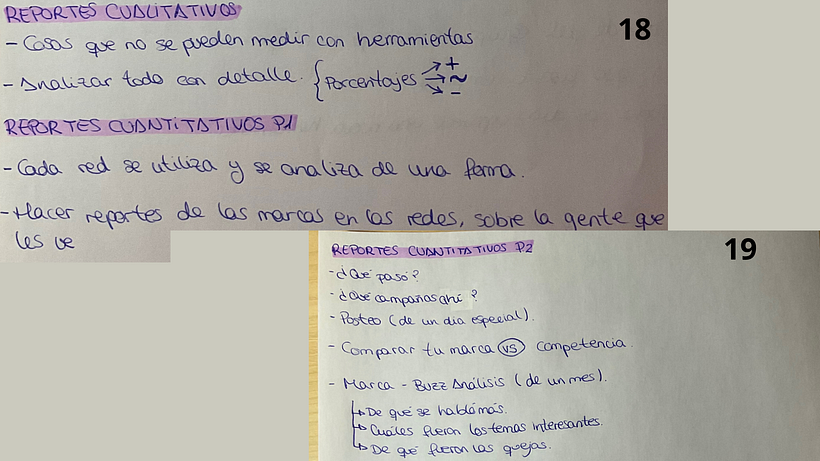 REPORTES CUALITATIVOS
18
- Cosas que no se pueden medir con herramientas
- Analizar todo con detalle. { Porcentajes → + → ~ → -
REPORTES CUANTITATIVOS P1
- Cada red se utiliza y se analiza de una forma.
- Hacer reportes de las marcas en las redes, sobre la gente que
les ve
19
REPORTES CUANTITATIVOS P2
- ¿Qué pasó?
- ¿Qué campañas ahí?
- Posteo (de un día especial).
- Comparar tu marca VS competencia.
- Marca - Buzz Análisis (de un mes).
↳ De qué se habló más.
↳ Cuáles fueron los temas interesantes.
↳ De qué fueron las quejas.